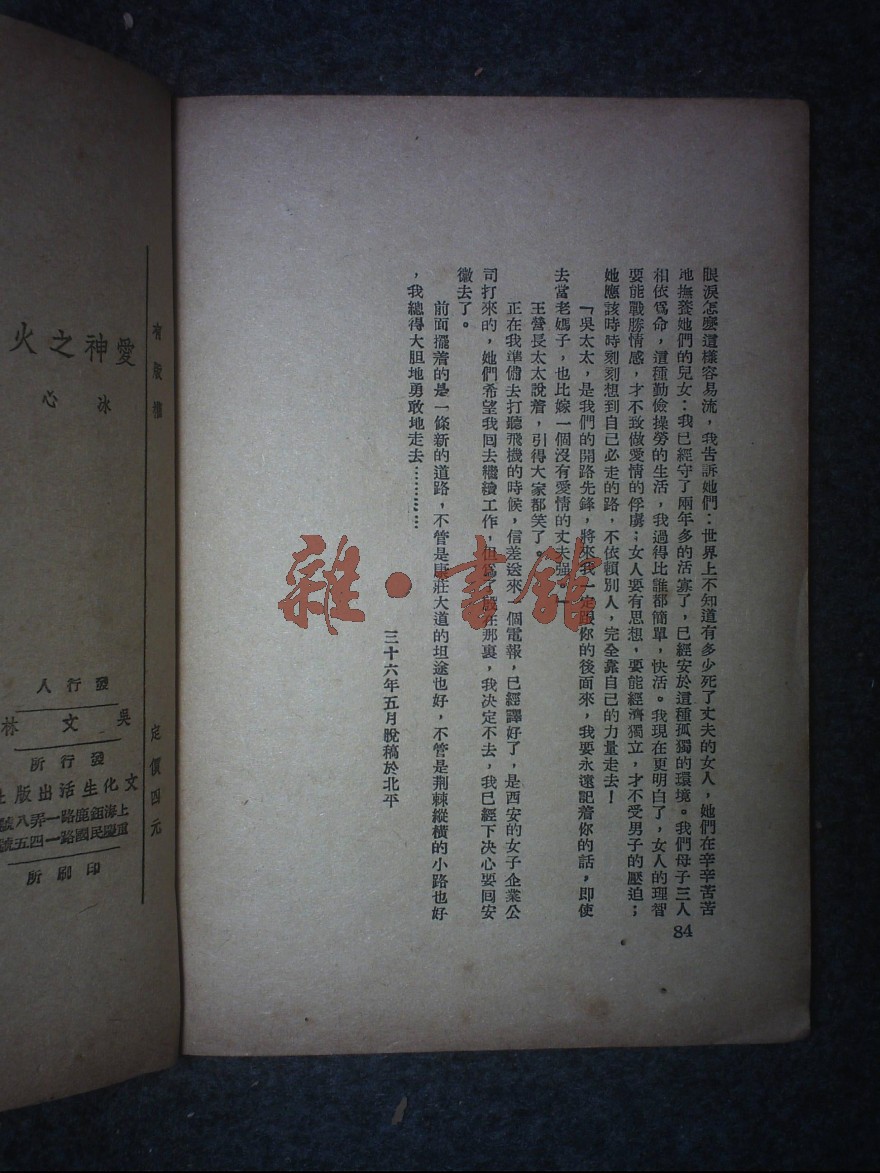 眼淚怎麼這樣容易流，我告訴她們：世界上不知道有多少死了丈夫的女人，她們在辛辛苦苦
地撫養她們的兒女：我已經守了兩年多的活寡了，已經安於這種孤獨的環境。我們母子三人
相依爲命，這種勤儉操勞的生活，我過得比誰都簡單，快活。我現在更明白了，女人的理智
要能戰勝情感，才不致做愛情的俘虜；女人要有思想，要能經濟獨立，才不受男子的壓迫；
她應該時時刻刻想到自己必走的路，不依賴別人，完全靠自己的力量走去！
「吳太太，是我們的開路先鋒，將來我一定跟你的後面來，我要永遠記着你的話，即使
去當老媽子，也比嫁一個沒有愛情的丈夫強。」
王營長太太說着，引得大家都笑了。
正在我準備去打聽飛機的時候，信差送來一個電報，已經譯好了，是西安的女子企業公
司打來的，她們希望我回去繼續工作，但爲了戲在那裏，我决定不去，我已經下决心要回安
徽去了。
前面擺着的是一條新的道路，不管是康莊大道的坦途也好，不管是荆棘縱橫的小路也好
，我總得大胆地勇敢地走去…………
三十六年五月脫稿於北平
84
雜·書館
有版權
定價四元
愛神之火
冰心
發行人
吳文林
發行所
文化生活出版社
上海鉅鹿路一弄八號
重慶民國路一四五號
印刷所